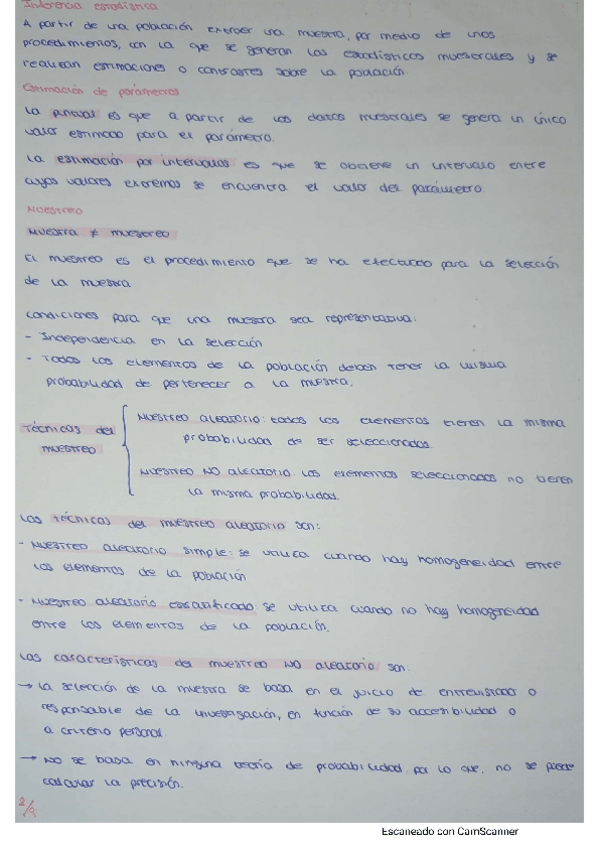 Inferencia estadística
A partir de una población extraer una muestra, por medio de unos
procedimientos, con la que se generan los estadísticos muestrales y se
realizan estimaciones o contrastes sobre la población.
Estimación de parámetros
La puntual es que a partir de los datos muestrales se genera un único
valor estimado para el parámetro.
La estimación por intervalos es que se obtiene un intervalo entre
cuyos valores extremos se encuentra el valor del parámetro.
Muestreo
Muestra ≠ muestreo
El muestreo es el procedimiento que se ha efectuado para la selección
de la muestra
Condiciones para que una muestra sea representativa:
- Independencia en la selección
- Todos los elementos de la población deben tener la misma
probabilidad de pertenecer a la muestra.
Muestreo aleatorio: todos los elementos tienen la misma
probabilidad de ser seleccionados.
Técnicas del
muestreo
Muestreo NO aleatorio: los elementos seleccionados no tienen
la misma probabilidad.
Las técnicas del muestreo aleatorio son:
- Muestreo aleatorio simple: se utiliza cuando hay homogeneidad entre
los elementos de la población
- Muestreo aleatorio estratificado: se utiliza cuando no hay homogeneidad
entre los elementos de la población.
Las características del muestreo NO aleatorio son:
→ La selección de la muestra se basa en el juicio de entrevistado o
responsable de la investigación, en función de su accesibilidad o
a criterio personal.
→ No se basa en ninguna teoría de probabilidad, por lo que, no se puede
calcular la precisión.
2/9
Escaneado con CamScanner